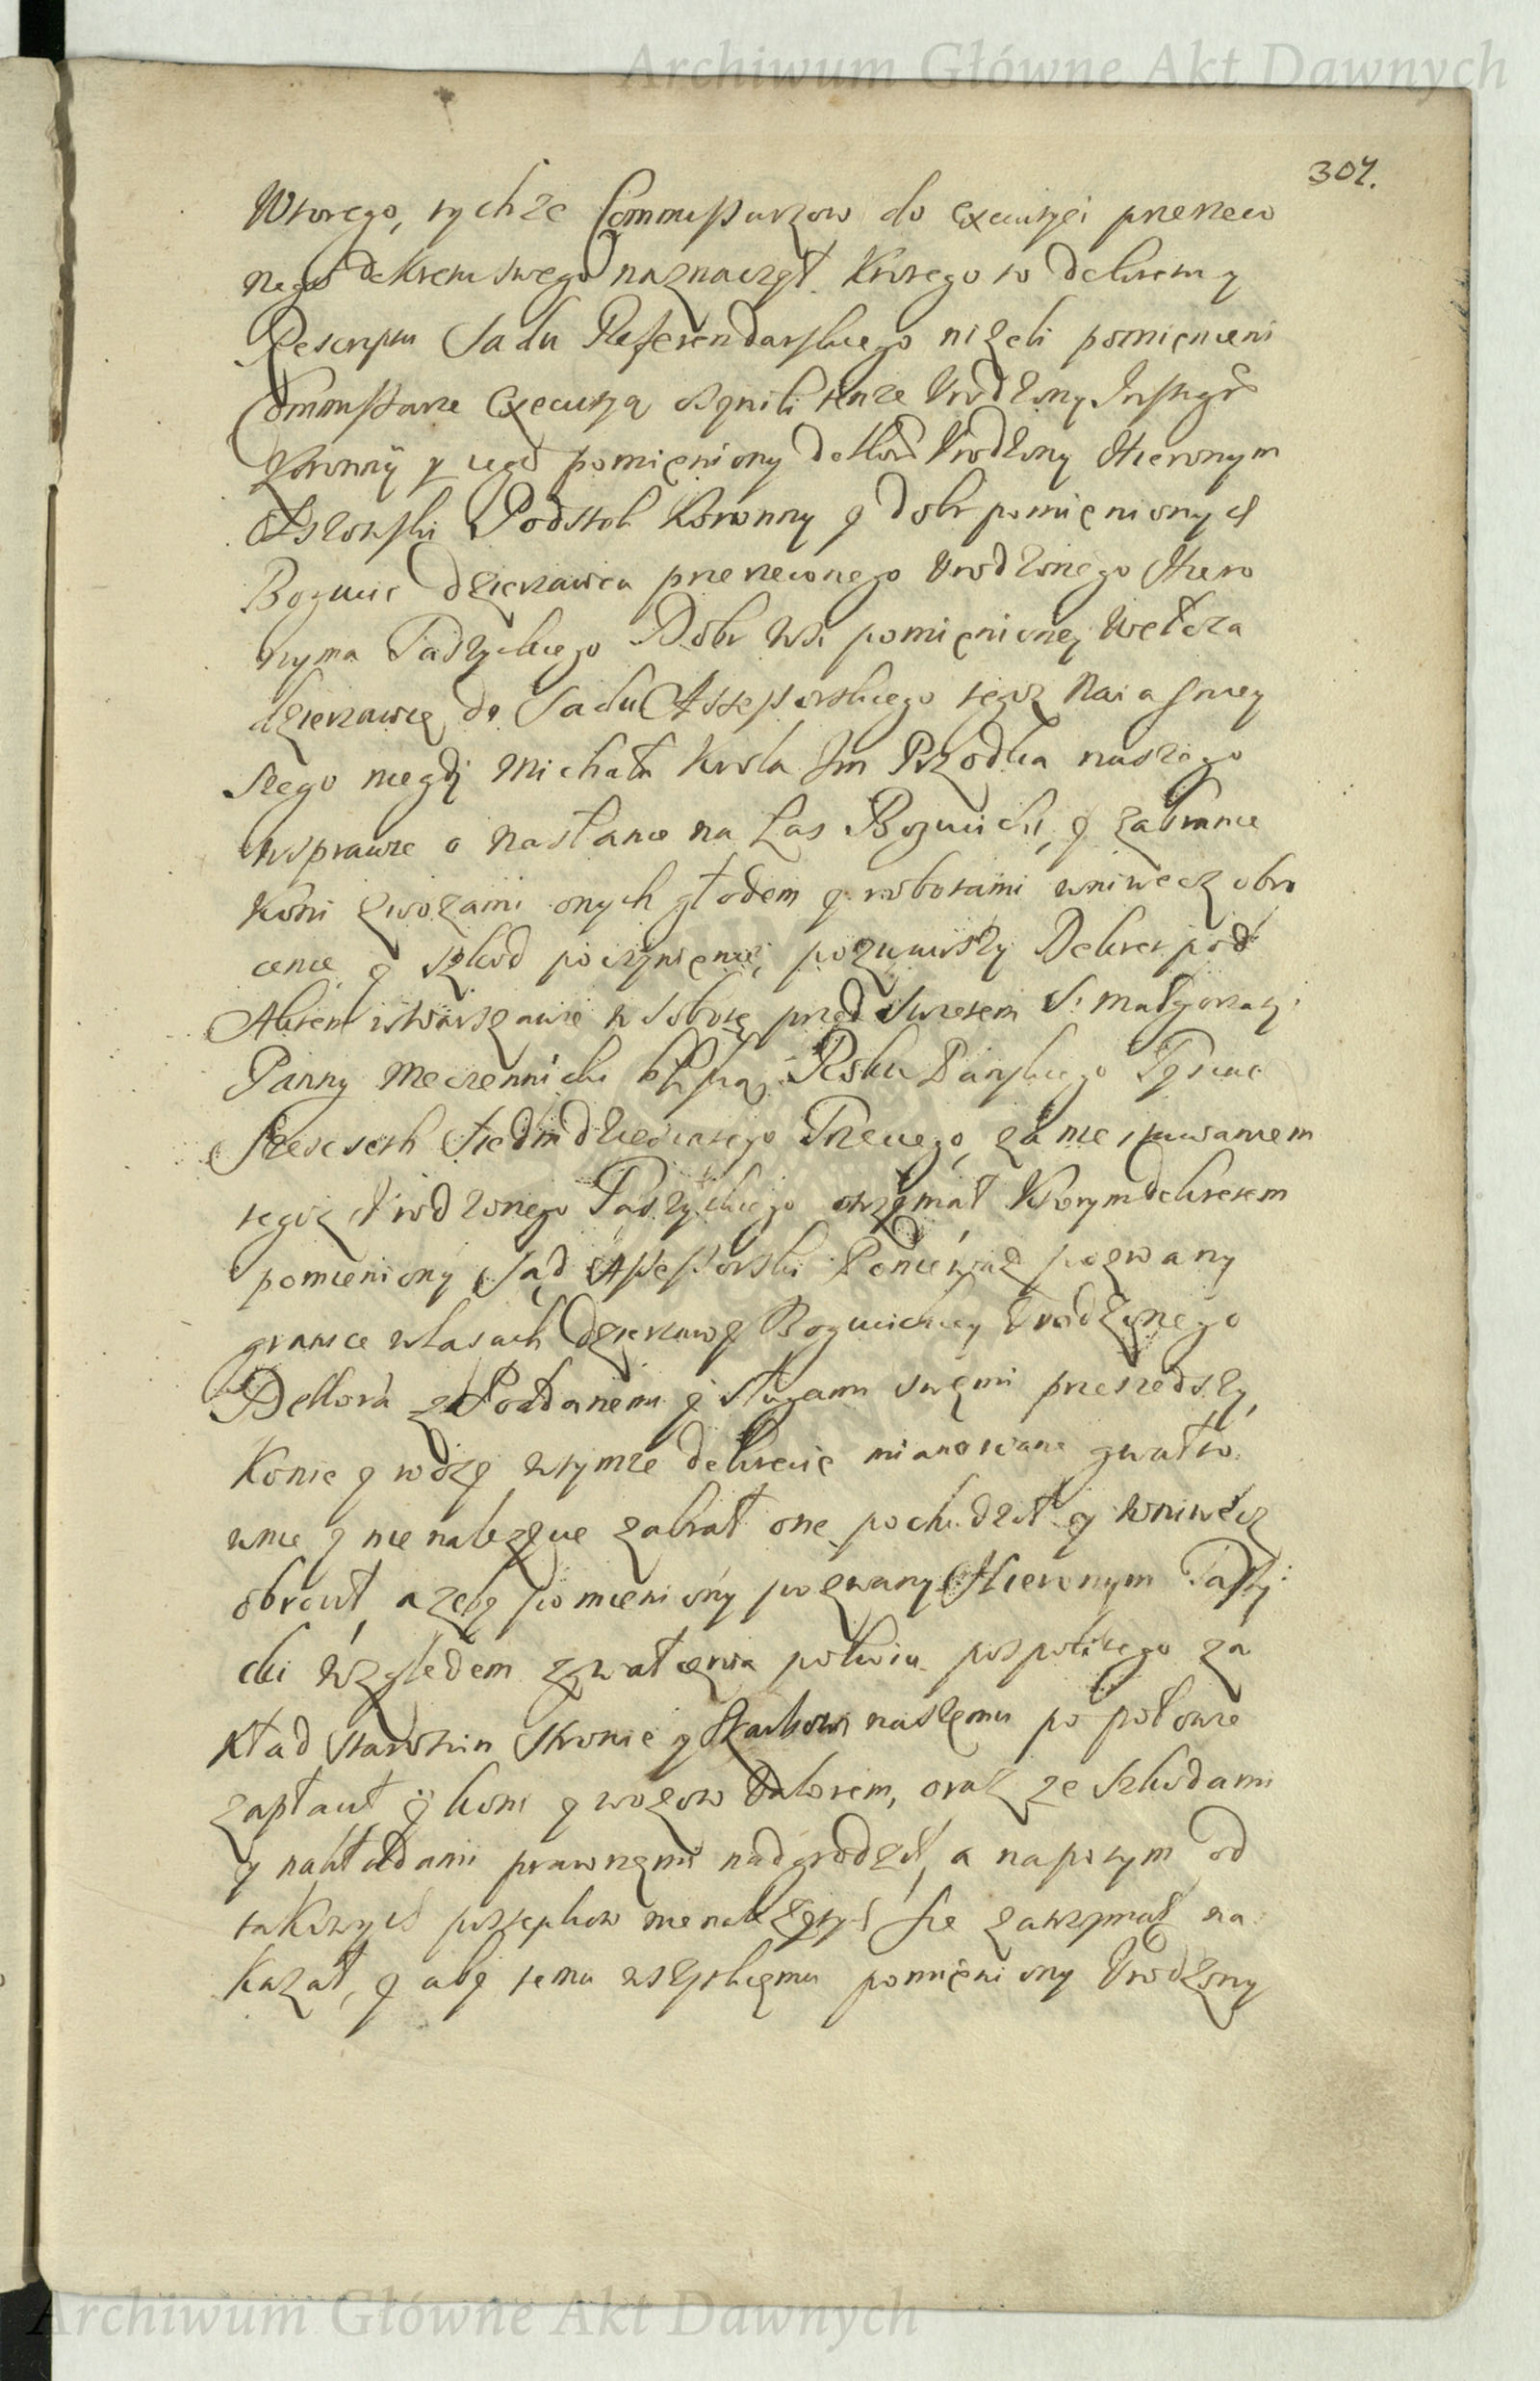 Archiwum Główne Akt Dawnych
307.
Wtorego, tychże Commissarzow do Execuzyei przerzeco
nego dekretu swego naznaczył. Ktorego to dekretu y
Rescryptu Sadu Referendarskiego niżeli pomienieni
Commissarze Execuzyą uczynili tenże Vrodzony Instygr
Koronny y iego pomięniony delator Vrodzony Hieronym
Podstoli Koronny y dobr pomięnionych
dzierzawca przerzeconego Vrodzonego Hiero
nyma Paszyckiego Dobr wsi pomięnioney
dzierzawcę do Sadu Assessorskiego tegoz Naiasniey
szego niegdy Michała Krola Jm Przodka naszego
wsprawie o nasłanie na Las y zabranie
Koni zwozami onych głodem y robotami wniwecz obro
cenie y szkod poczynienie, pozwawszy Dekret pod
Aktem wWarszawie w Sobotę przed Swietem S. Małgorzaty
Panny Męczenniczki Roku Panskiego Tysiac
Szescseth Siedmdziesiatego Trzeciego, za niestawaniem
tegoz Vrodzonego Paszyckiego otrzymał Ktorym dekretem
pomieniony Sąd Assessorski Ponieważ pozwany
granice wlasach dzierzawy Vrodzonego
Delatora z Poddanemi y sługami swęmi przeszedszy,
Konie y wozy wtymże dekrecie mianowane gwałto
wnie y nienalezycie zabrał one pochudził y wniwecz
obrocił, azeby pomieniony pozwany Hieronym Paszy
cki względem zgwałcenia pokoiu pospolitego za
kład Starostin Stronie y Skarbowi naszemu po połowie
zapłacił y koni y wozow walorem, oraz ze Szkodami
y nakładami prawnęmi nadgrodził, a napotym od
takowych postępkow nienalezytych się zatrzymał na
kazał, y aby temu wszystkięmu pomięniony Vrodzony
Archiwum Główne Akt Dawnych